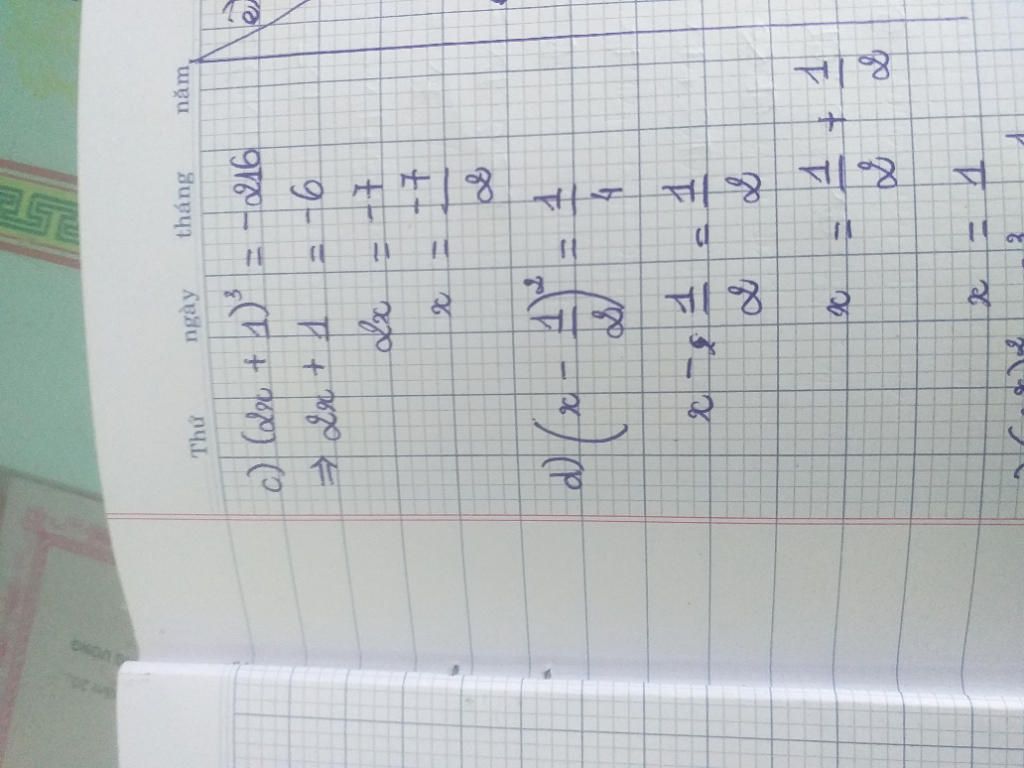 Thứ ngày tháng năm
c) (2x + 1)³ = -216
⇒ 2x + 1 = -6
2x = -7
x = -7/2
d) (x - 1/2)² = 1/4
x - 1/2 = 1/2
x = 1/2 + 1/2
x = 1